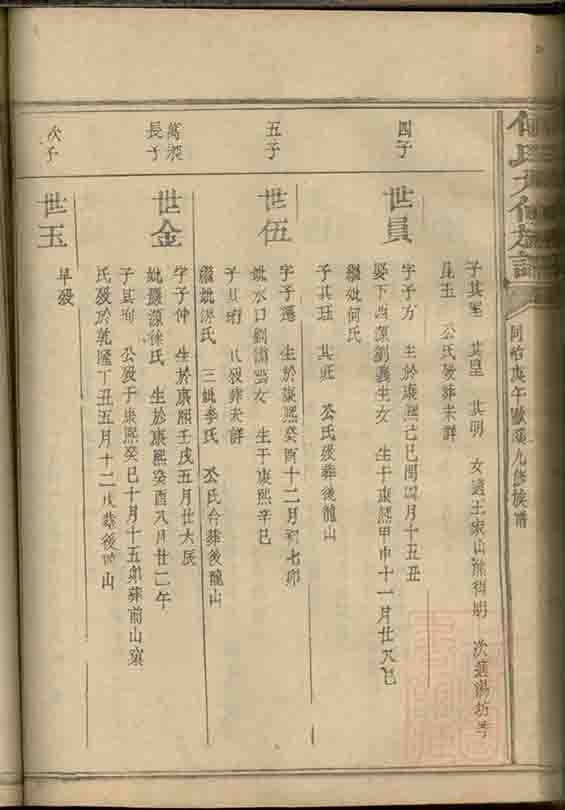 同治庚午歐溪九修族譜
子其星 其皇 其明 女適王家山 次適湯坊
昆玉 公氏歿葬未詳
四子
世員
字子方 生於康熙己巳閏四月十五丑
娶下西源劉義生女 生于康熙甲申十一月廿八巳
繼妣何氏
子其珏 其班 公氏歿葬後龍山
五子
世伍
字子選 生於康熙癸酉十二月初七卯
妣水口劉 女 生于康熙辛巳
子其 公歿葬未詳
繼妣 氏 三妣李氏 公氏合葬後龍山
長子
世金
字子仲 生於康熙壬戌五月廿六辰
妣嚴源徐氏 生於康熙癸酉八月廿二午
子其 公歿于康熙癸巳十月十五卯葬前山
氏歿於乾隆丁丑五月十二 葬後 山
次子
世玉
早歿